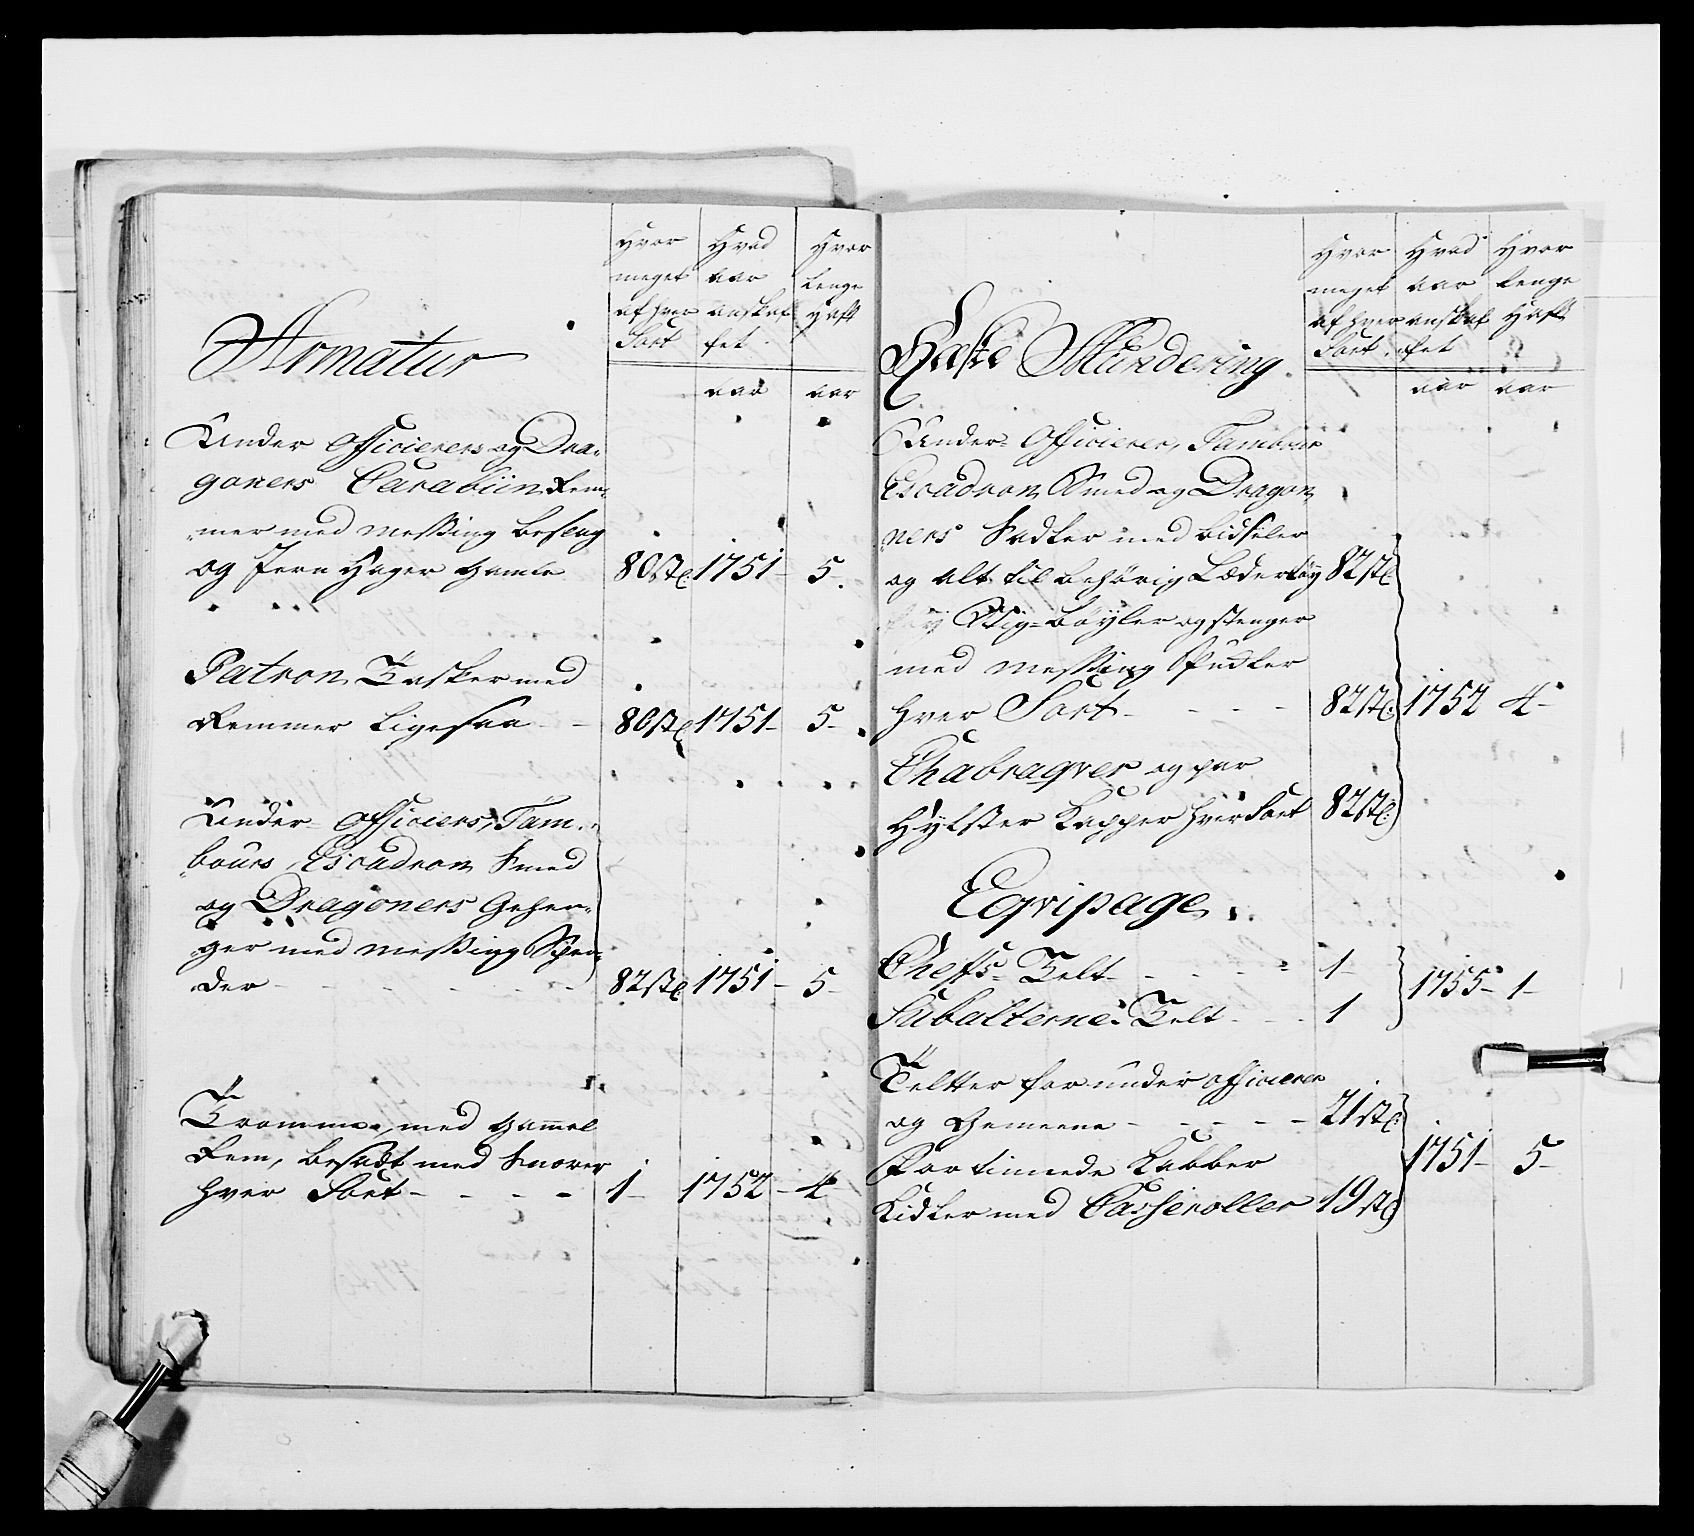 Hvor meget af hver Sort
Hvad aar anskaf fet
Hvor Lenge Haft
Armatur
aar aar
Under Officierers og Dra-
goners Carabiin Rem-
mer med messing beslag
og Jern Hager gamle 80 st 1751- 5-
Patron Tasker med
Remmer Ligesaa - - 80 st 1751- 5-
Under Officiers, Tam-
bours, Escadron Smed
og Dragoners Gehen-
ger med messing Spen-
der - - - - - 82 st 1751- 5-
Tromme, med gammel
Rem, besadt med Snorer
hver Sort - - - - 1- 1752- 4-
Hvor meget af hver Sort
Hvad aar anskaf fet
Hvor Lenge Haft
Heste Mundering
aar aar
Under Officierer, Tambour
Escadron Smed og Dragon-
ners Sadler med bidseler
og alt til behörig Læder töy 82 st
Stig-Böyler og stenger
med messing Pudler
hver Sort - - - - 82 st 1752 4-
Chabraqver og par
Hylster Kapper hver Sort 82 st
Eqvipage
Chefs Telt - - - - 1-
1755- 1-
Subalterne Telt - - - 1
Teltter for under officierer
og Gemeene - - - - 21 st
1751- 5-
Fortinnede Kabber
Kidler med Casseroller 19 st